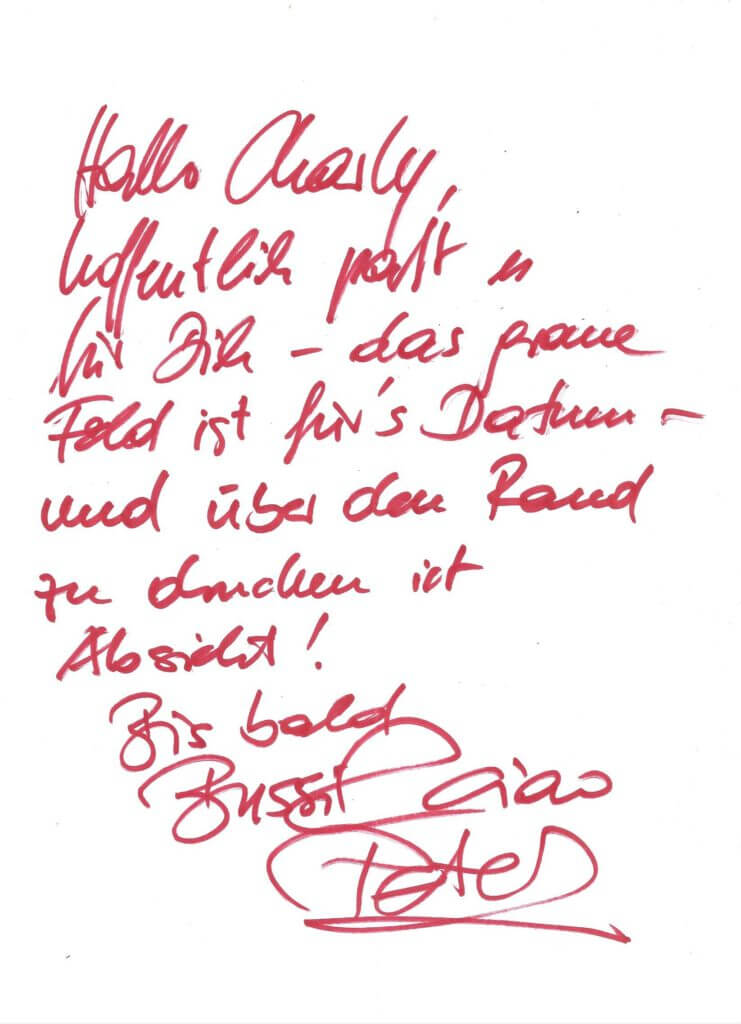 Hallo Charly,
hoffentlich paßt es
für Dich – das graue
Feld ist für's Datum –
und über den Rand
zu drucken ist
Absicht!
Bis bald
Bussi Ciao
Peter